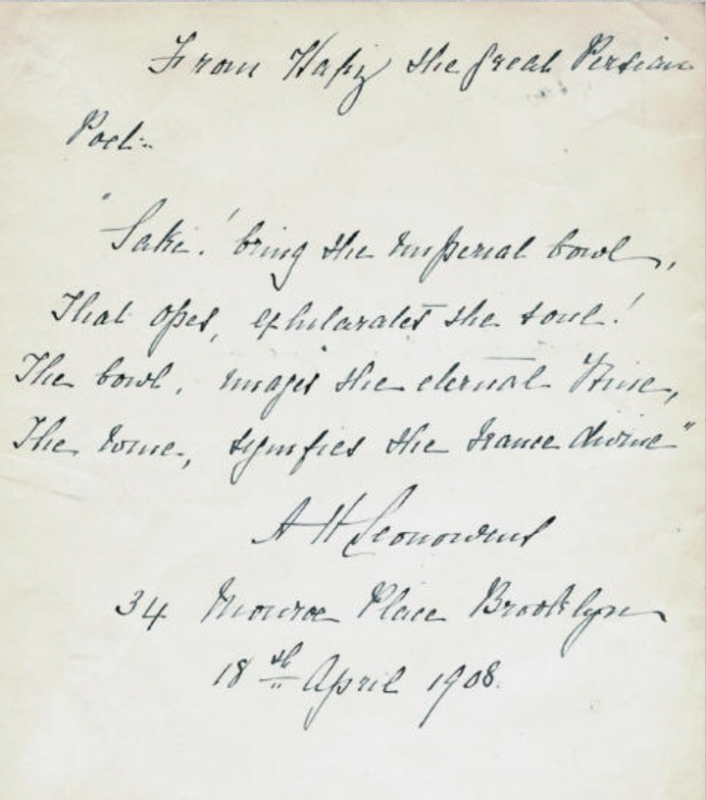 From Hafiz the great Persian
Poet:-
"Saki! bring the imperial bowl,
That opes, exhilarates the soul!
The bowl, images the eternal
The wine, signifies the trance divine"
A H Leonowens
34 Monroe Place Brooklyn
18th April 1908.